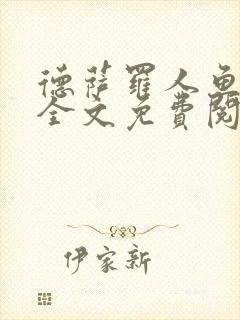 德萨罗人鱼
全文免费阅
伊家新